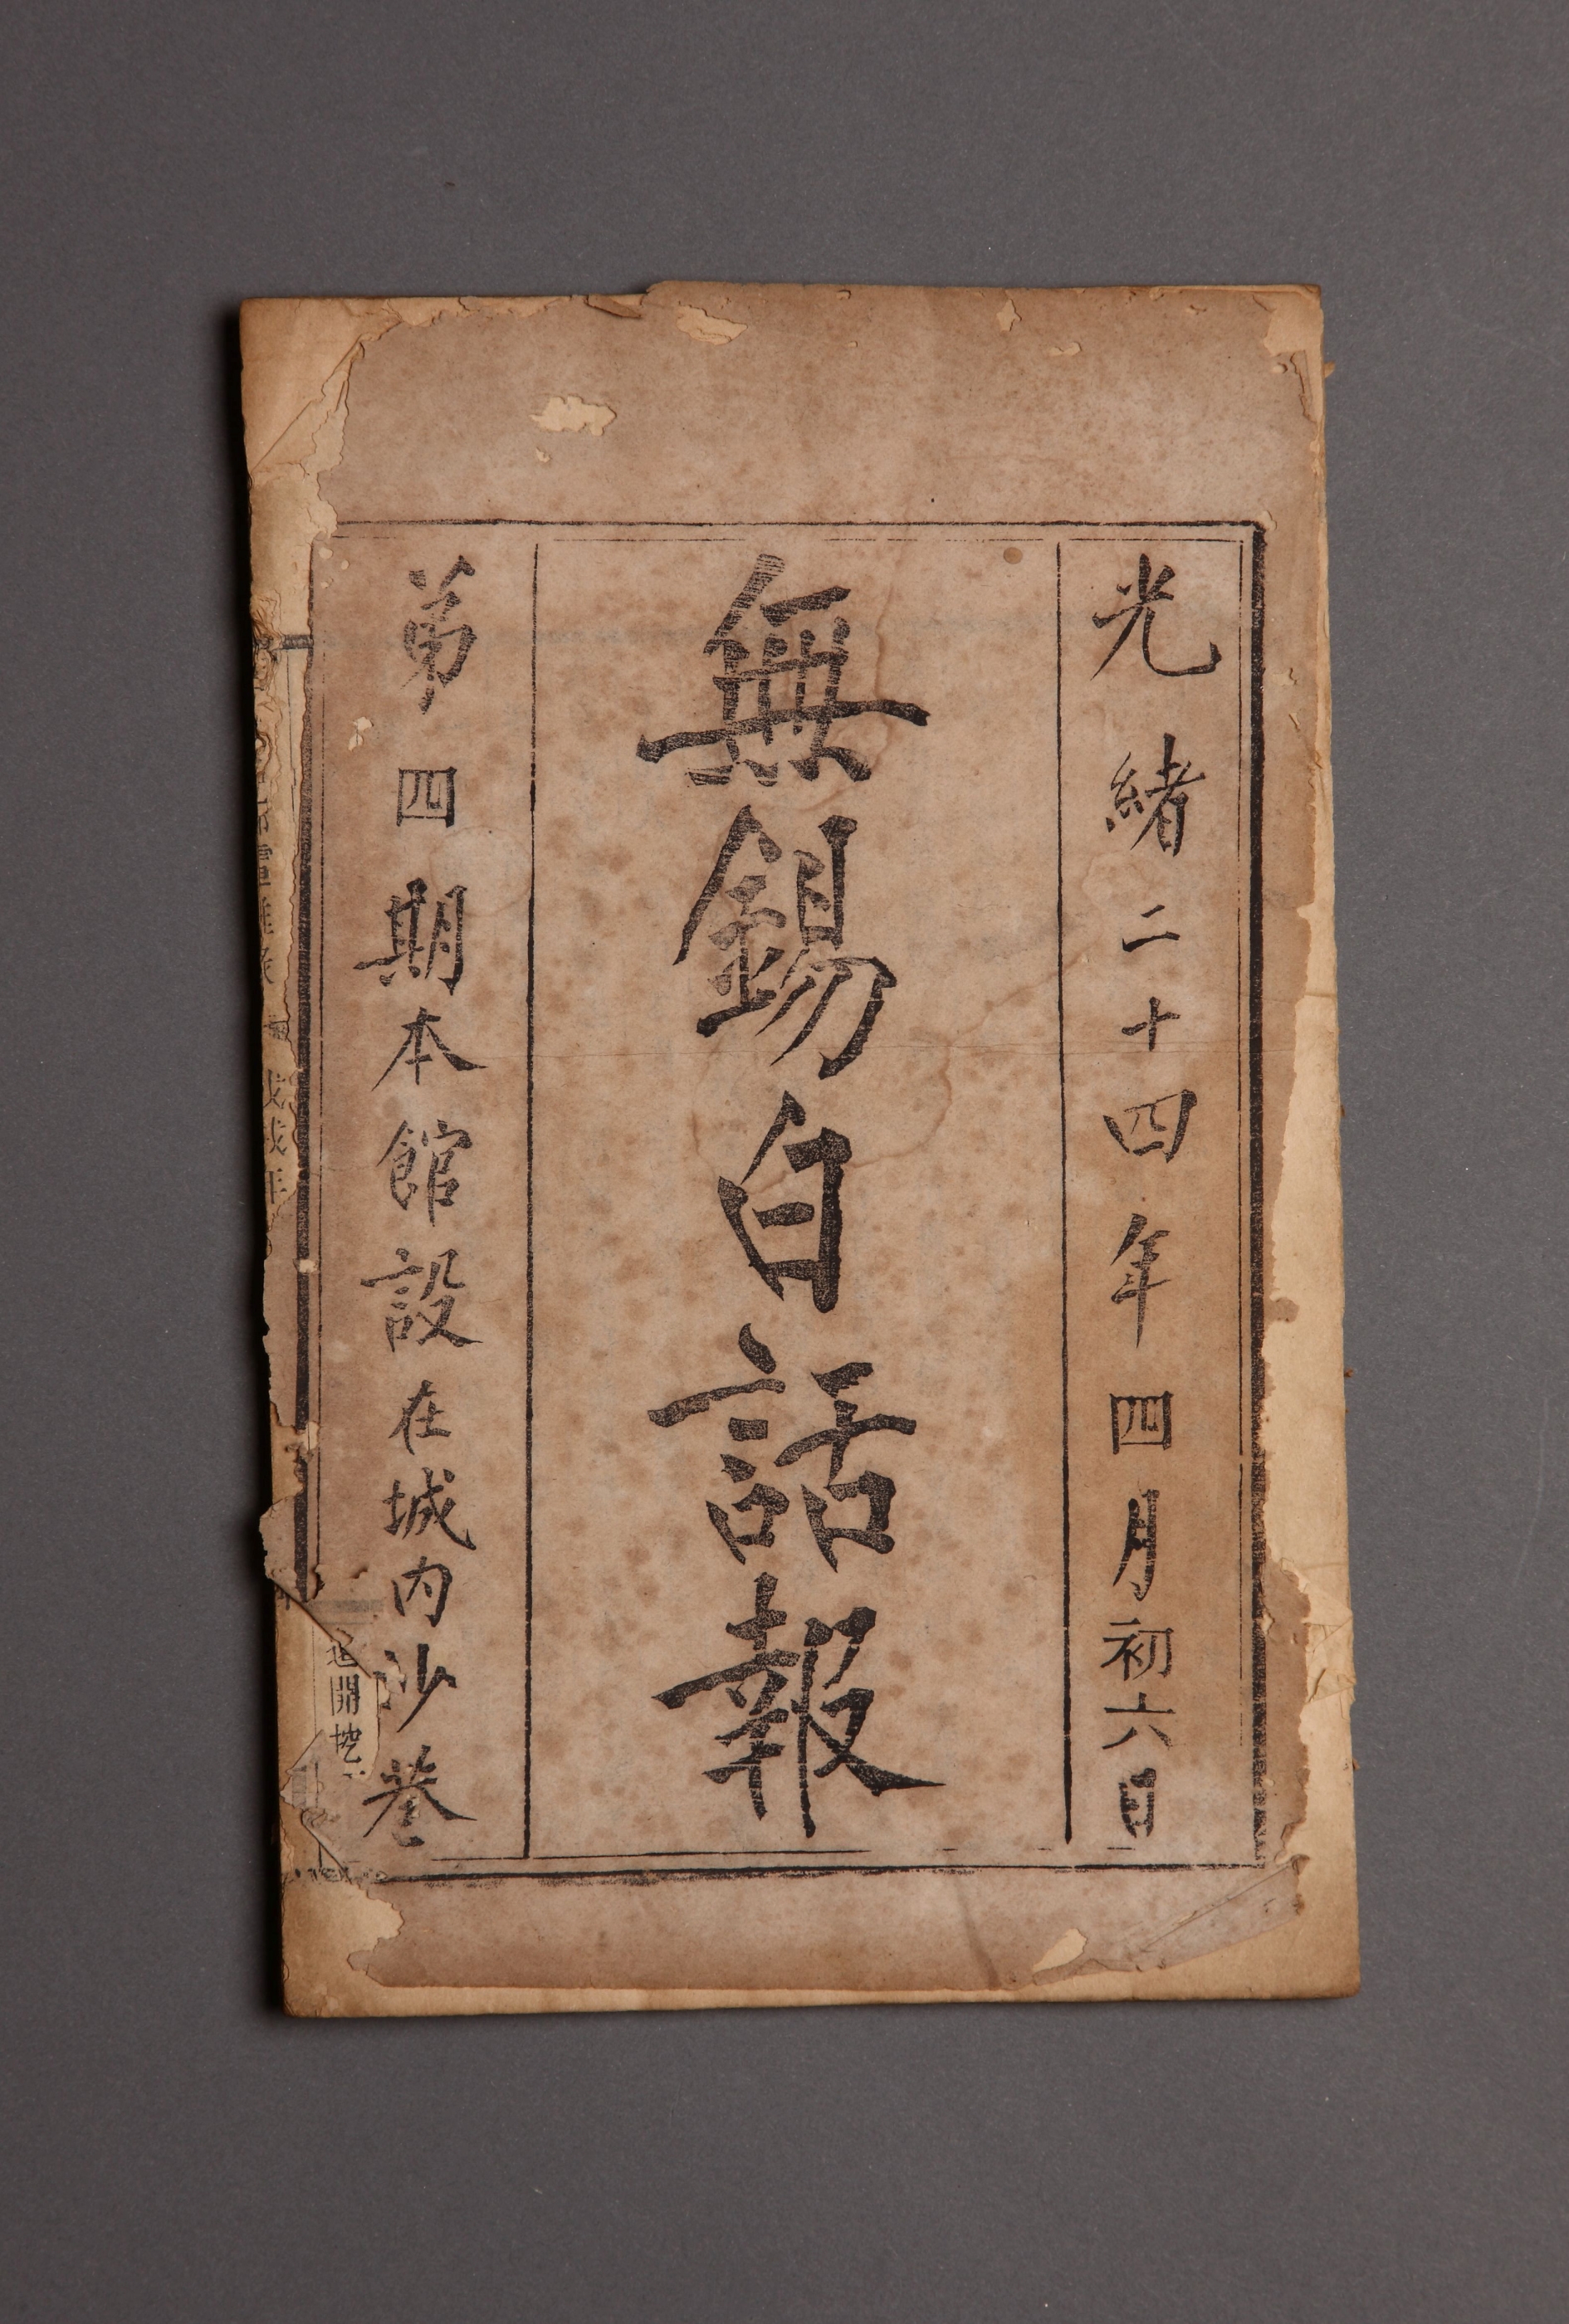 光緒二十四年四月初六日
無錫白話報
第四期本館設在城内沙巷
開挖
戊戌年